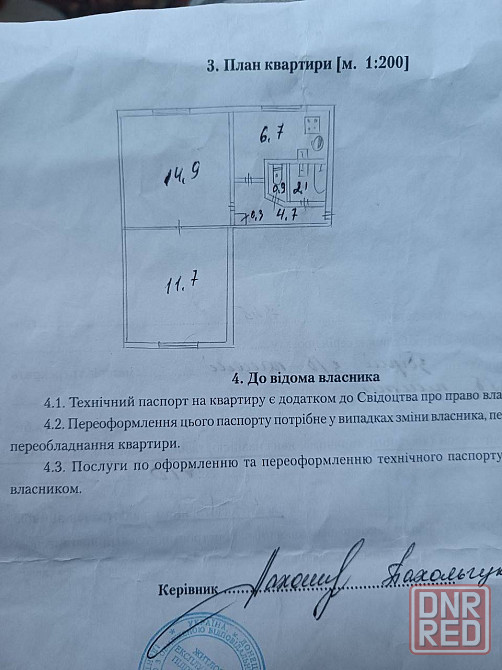 3. План квартири [м. 1:200]
14,9
6,7
0,9
2,1
0,3
4,7
11,7
4. До відома власника
4.1. Технічний паспорт на квартиру є додатком до Свідоцтва про право вла
4.2. Переоформлення цього паспорту потрібне у випадках зміни власника, пе
переобладнання квартири.
4.3. Послуги по оформленню та переоформленню технічного паспорту
власником.
Керівник
УКРАЇНА
DNR
RED